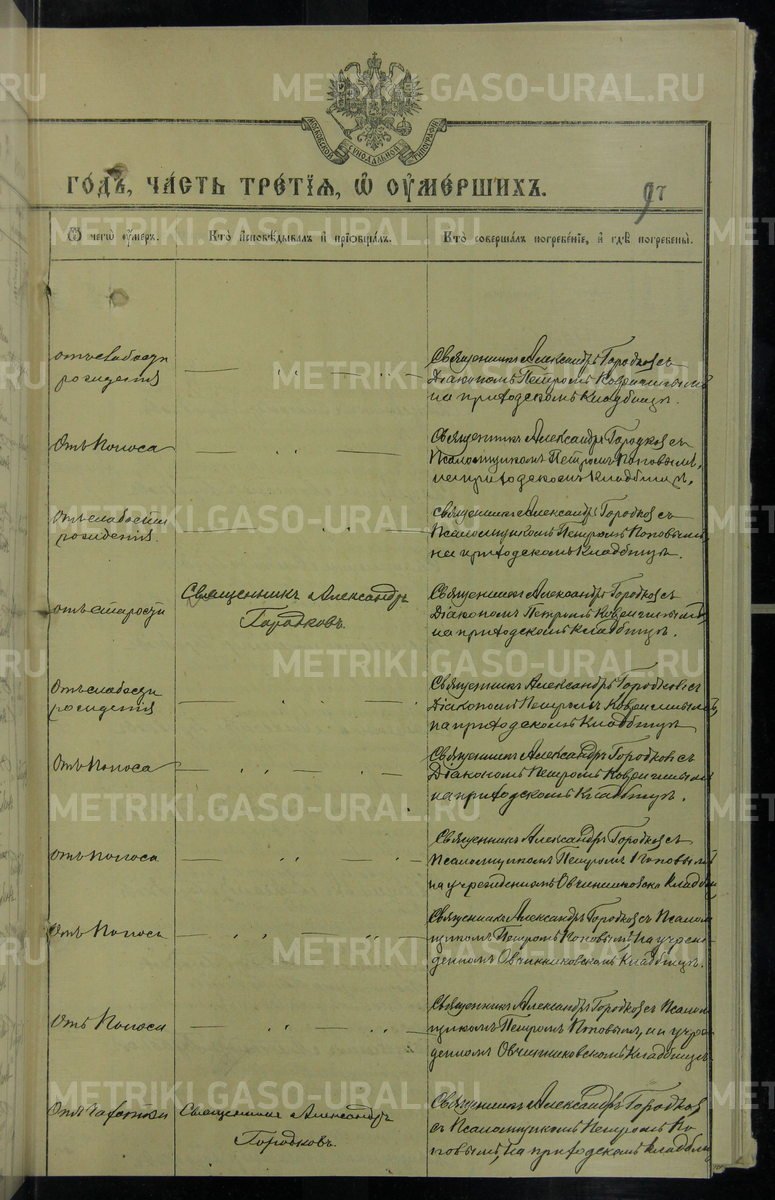 МОСКОВСКОЙ СѴНОДАЛЬНОЙ ТИПОГРАФІИ
METRIKI.GASO-URAL.RU
го́дъ, ча́сть тре́тїѧ, ѡ҆ ᲂу҆ме́ршихъ.
97
Ѿ чегѡ̀ ᲂу҆́меръ.
Кто̀ и҆сповѣ́дывалъ и҆ прїѻбща́лъ.
Кто̀ соверша́лъ погребе́нїе, и҆ гдѣ̀ погребены̀.
отъ слабости
рожидетія
Священникъ Александръ Городковъ съ
Діакономъ Петромъ
на приходскомъ кладбищѣ.
Отъ поноса
Священникъ Александръ Городковъ съ
Псаломщикомъ Петромъ Поповымъ,
на приходскомъ кладбищѣ.
Отъ слабости
рожидетія.
Священникъ Александръ Городковъ съ
Псаломщикомъ Петромъ Поповымъ,
на приходскомъ кладбищѣ.
отъ старости
Священникъ Александръ
Городковъ.
Священникъ Александръ Городковъ съ
Діакономъ Петромъ
на приходскомъ кладбищѣ.
Отъ слабости
рожидетія
Священникъ Александръ Городковъ съ
Діакономъ Петромъ
на приходскомъ кладбищѣ
Отъ поноса
Священникъ Александръ Городковъ съ
Діакономъ Петромъ
на приходскомъ кладбищѣ.
отъ поноса
Священникъ Александръ Городковъ съ
Псаломщикомъ Петромъ Поповымъ
на учрежденномъ Овчинниковско кладби
Отъ поноса
Священникъ Александръ Городковъ съ Псалом
щикомъ Петромъ Поповымъ на учреж
денномъ Овчинниковскомъ кладбищѣ.
Отъ поноса
Священникъ Александръ Городковъ съ Псалом
щикомъ Петромъ Поповымъ, на учре
денномъ Овчинниковскомъ кладбищѣ.
Отъ чахотки
Священникъ Александръ
Городковъ.
Священникъ Александръ Городков
съ Псаломщикомъ Петромъ По
повымъ, на приходскомъ кладби